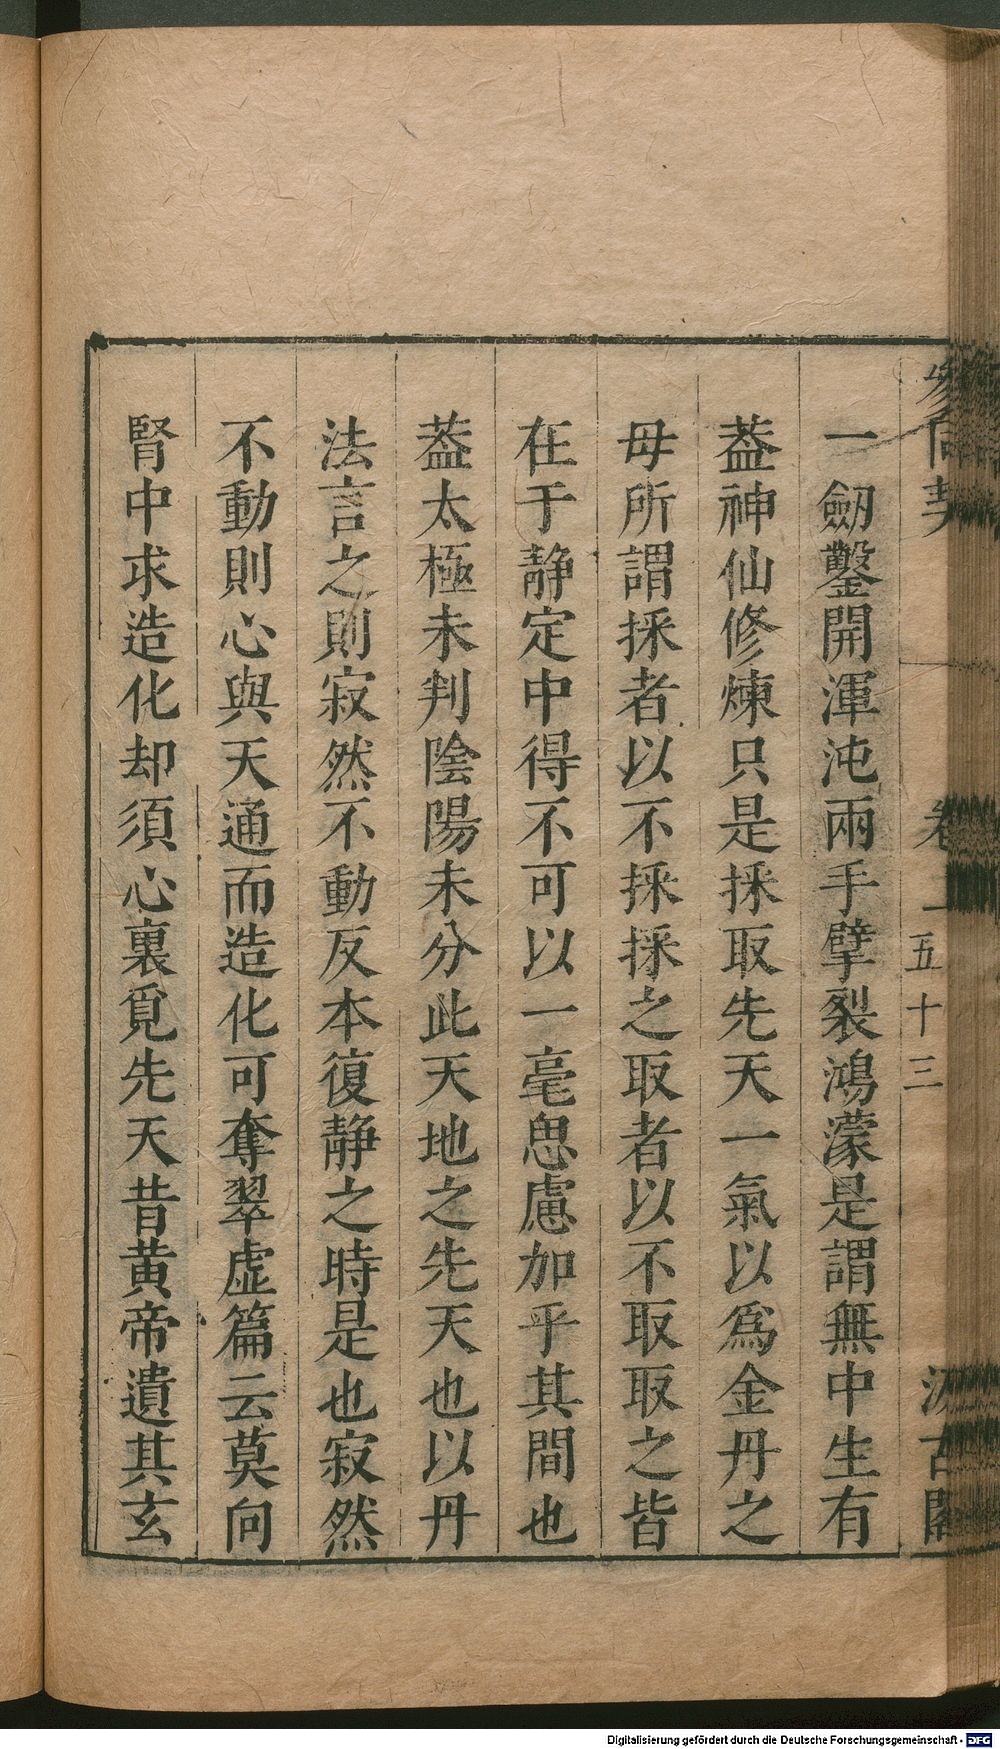 參同契 卷上 五十三 汲古閣
一劒鑿開渾沌兩手擘裂鴻濛是謂無中生有
葢神仙修煉只是採取先天一氣以爲金丹之
母所謂採者以不採採之取者以不取取之皆
在于靜定中得不可以一毫思慮加乎其間也
葢太極未判陰陽未分此天地之先天也以丹
法言之則寂然不動反本復靜之時是也寂然
不動則心與天通而造化可奪翠虛篇云莫向
腎中求造化却須心裏覓先天昔黄帝遺其玄
Digitalisierung gefördert durch die Deutsche Forschungsgemeinschaft - DFG